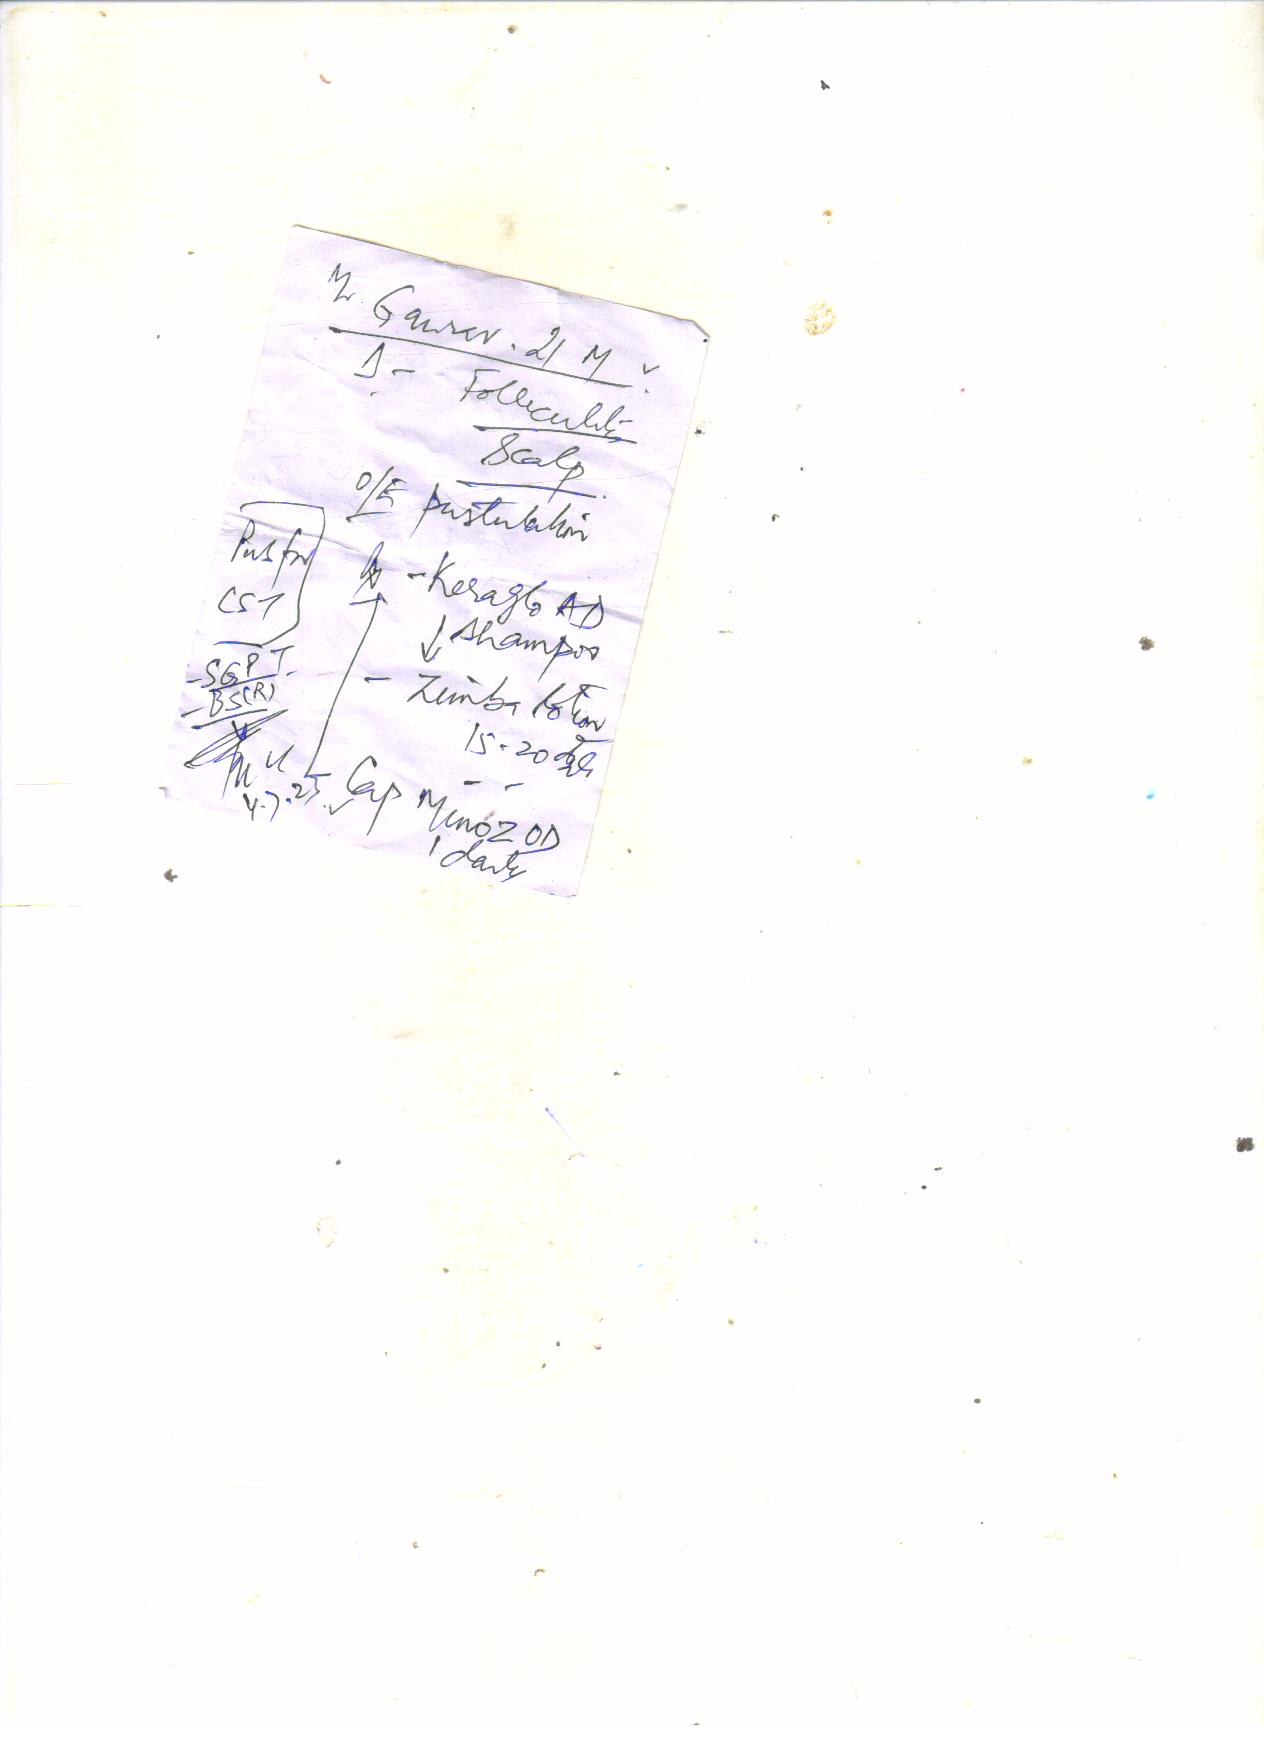 Mr. Gaurav. 21 M
Δ - Folliculitis
Scalp
O/E pustulation
Pus for
CST
- SGPT
- BS(R)
Rx - Keraglo AD
Shampoo
- Zimba lotion
15-20
4.7.25
Cap Minoz OD
1 daily